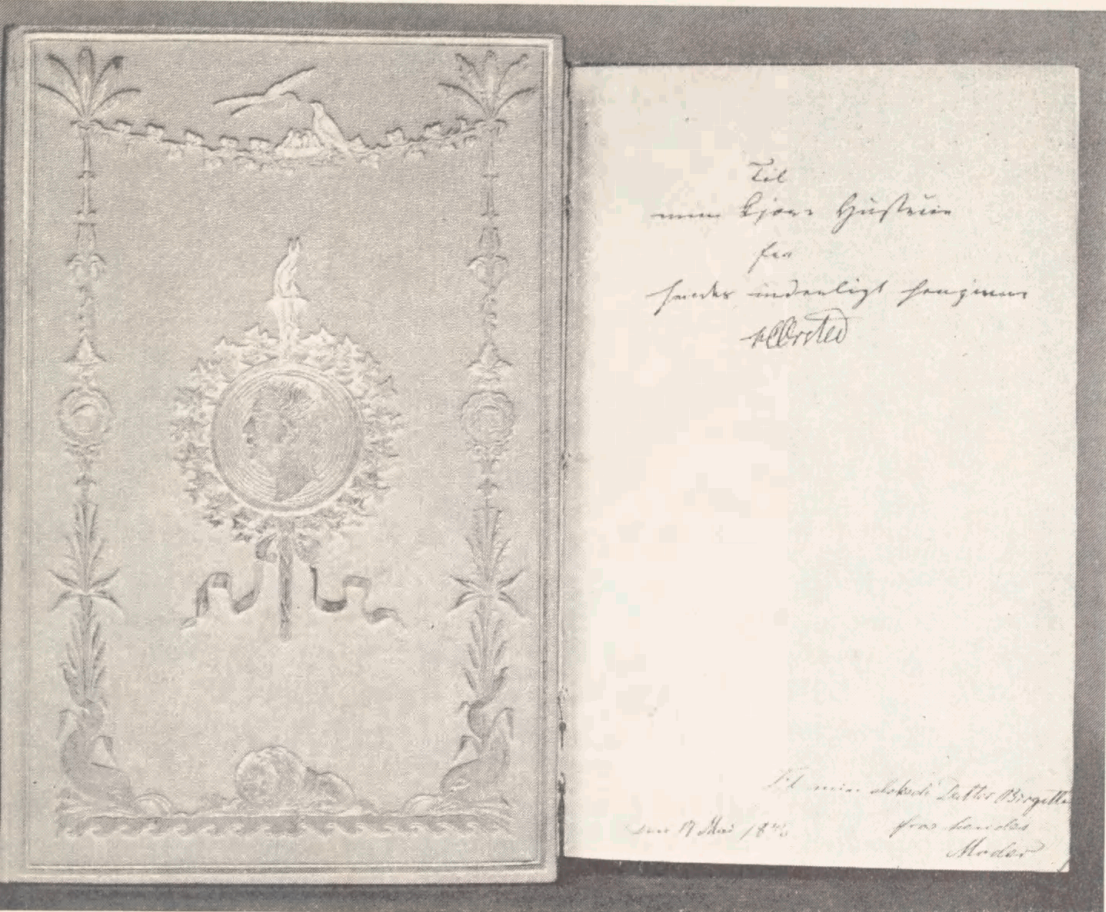 Til
min kjære Hustrue
fra
hendes inderligt hengivne
HCØrsted
Til min elskede Datter Birgitte
fra hendes
Moder
den 17 Mai